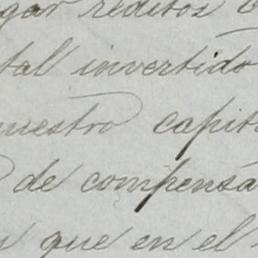 gar réditos
tal invertido
nuestro capit
de compensa
que en el